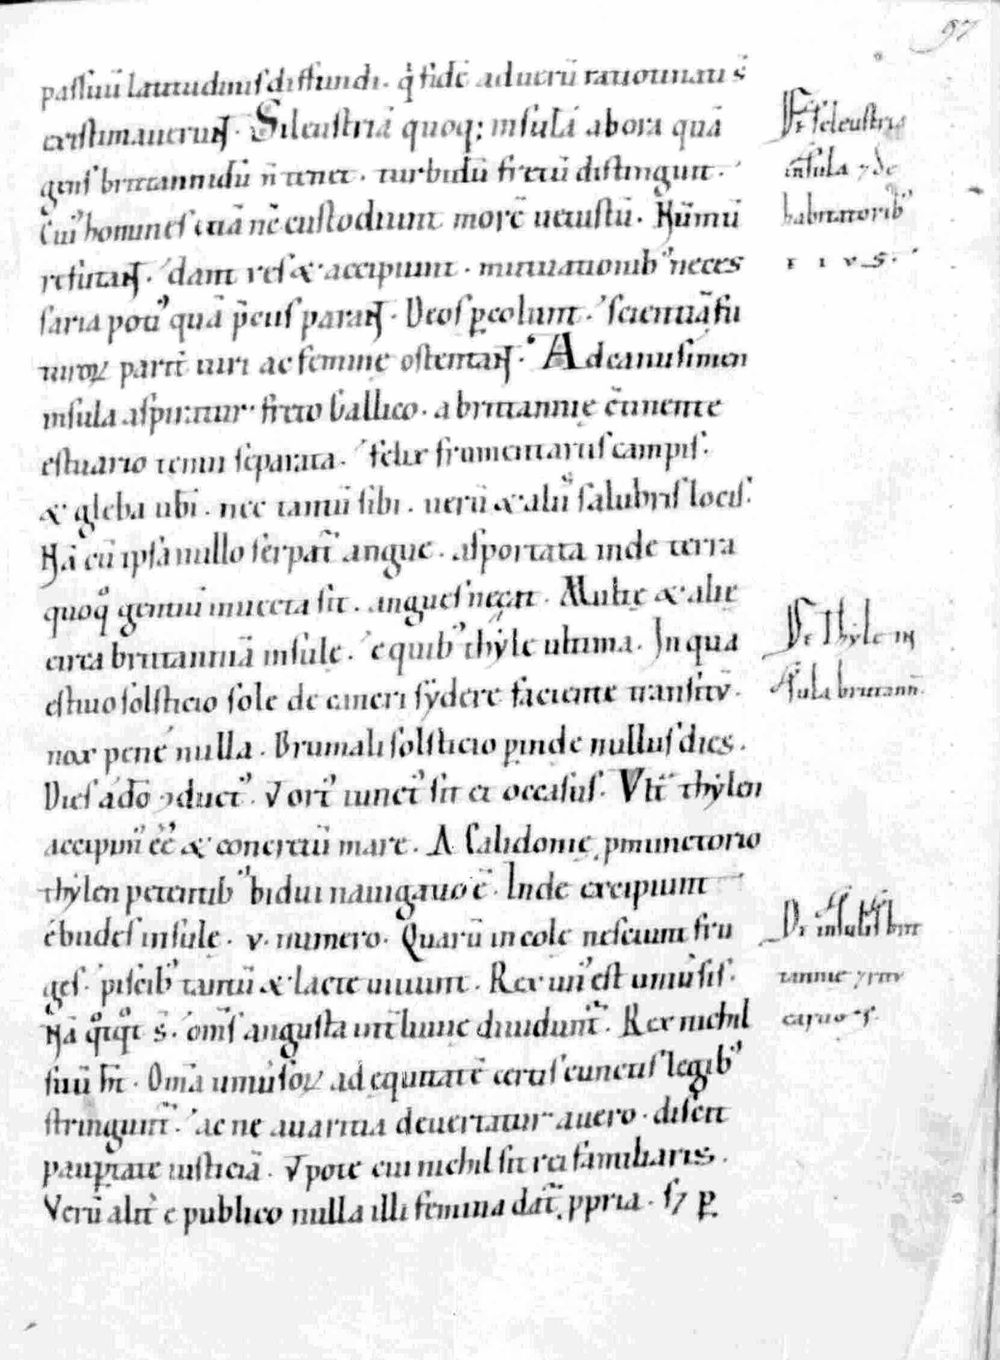 97
passuū latitudinis diffundi. q̇ fidē ad uerū ratiocinati s̄
existimauerunt. Silcustriā quoq; insulā ab ora quā
gens brittannidū n̄ tenet. turbidū fretū distinguit.
Cui᷒ homines etiā nc̄ custodiunt morē uetustū. Nūmū
refutant. dant res & accipiunt. mutuationib᷒ neces
saria poti᷒ quā p̄ciis parant. Deos p̱colunt. scientiā fu
turoꝝ parit̄ uiri ac femine ostentant. Adeanusimen
insula aspiratur freto Gallico. a brittannie c̄tinente
estuario tenui separata. felix frumentariis campis.
& gleba ubi. nec tantū sibi. uerū & aliis salubris locis.
Nā cū ipsa nullo serpat̄ angue. asportata inde terra
quoq̊ gentiū inuecta sit. angues necat. Multe & alie
circa brittanniā insule. e quib᷒ thẏle ultima. In qua
estiuo solsticio sole de cancri sẏdere faciente transitū.
nox pene nulla. Brumali solsticio ꝑinde nullus dies.
Dies adō ꝯduct᷒. Vort᷒ iunct᷒ sit et occasus. Vlt̄ thẏlen
accipim᷒ ēē & concretū mare. A Calidonie ꝓmunctorio
thẏlen petentib᷒ bidui nauigatio ē. Inde excipiunt
ebudes insule. v. numero. Quarū incole nesciunt fru
ges. piscib᷒ tantū & lacte uiuunt. Rex un᷒ est uniūsis.
Nā q̊tq̊t s̄. om̄s angusta int̄luuie diuidunt̄. Rex nichil
suū h̄t. Om̄a uniūsoꝝ ad equitatē certis cunctis legib᷒
stringunt̄. ac ne auaritia deuertatur a uero. discit
paup̱tate iusticiā. Vpote cui nichil sit rei familiaris.
Verū alit̄ e publico nulla illi femina dat̄ ꝓpria. s7 ꝑ
De silcustria
insula 7 de
habitatorib᷒
De Thẏle in
sula britann̄.
De insulis brit
tannie 7